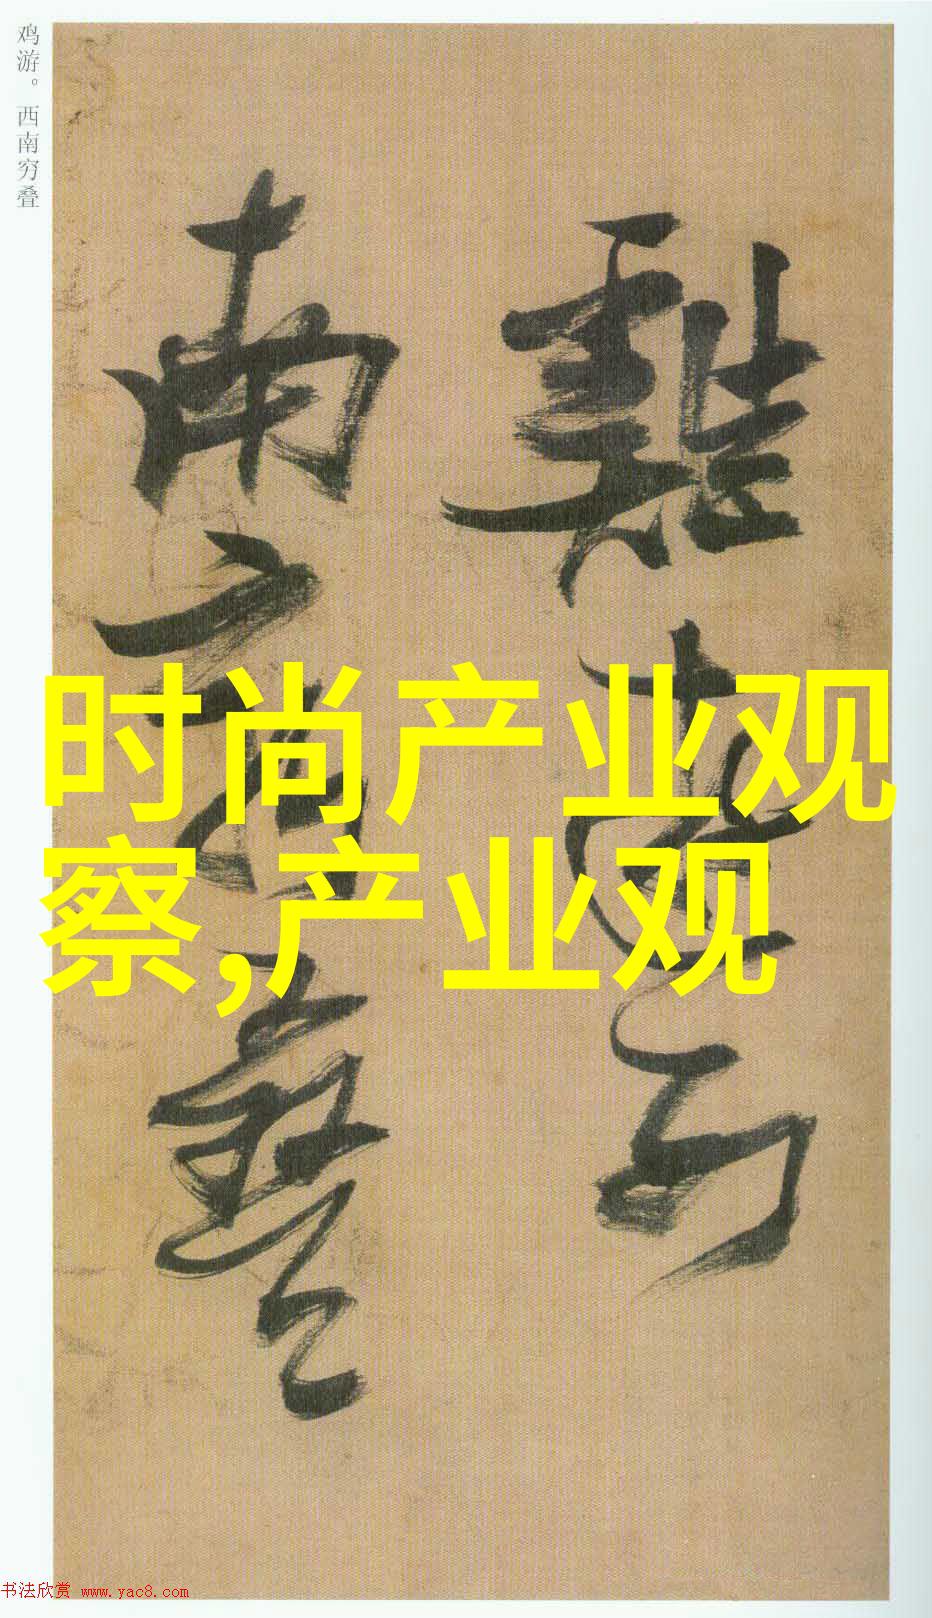 鸡游。西南穷叠
雞遊西
南窮疊
时尚产业观
察,产业观
书法欣赏 www.yac8.com